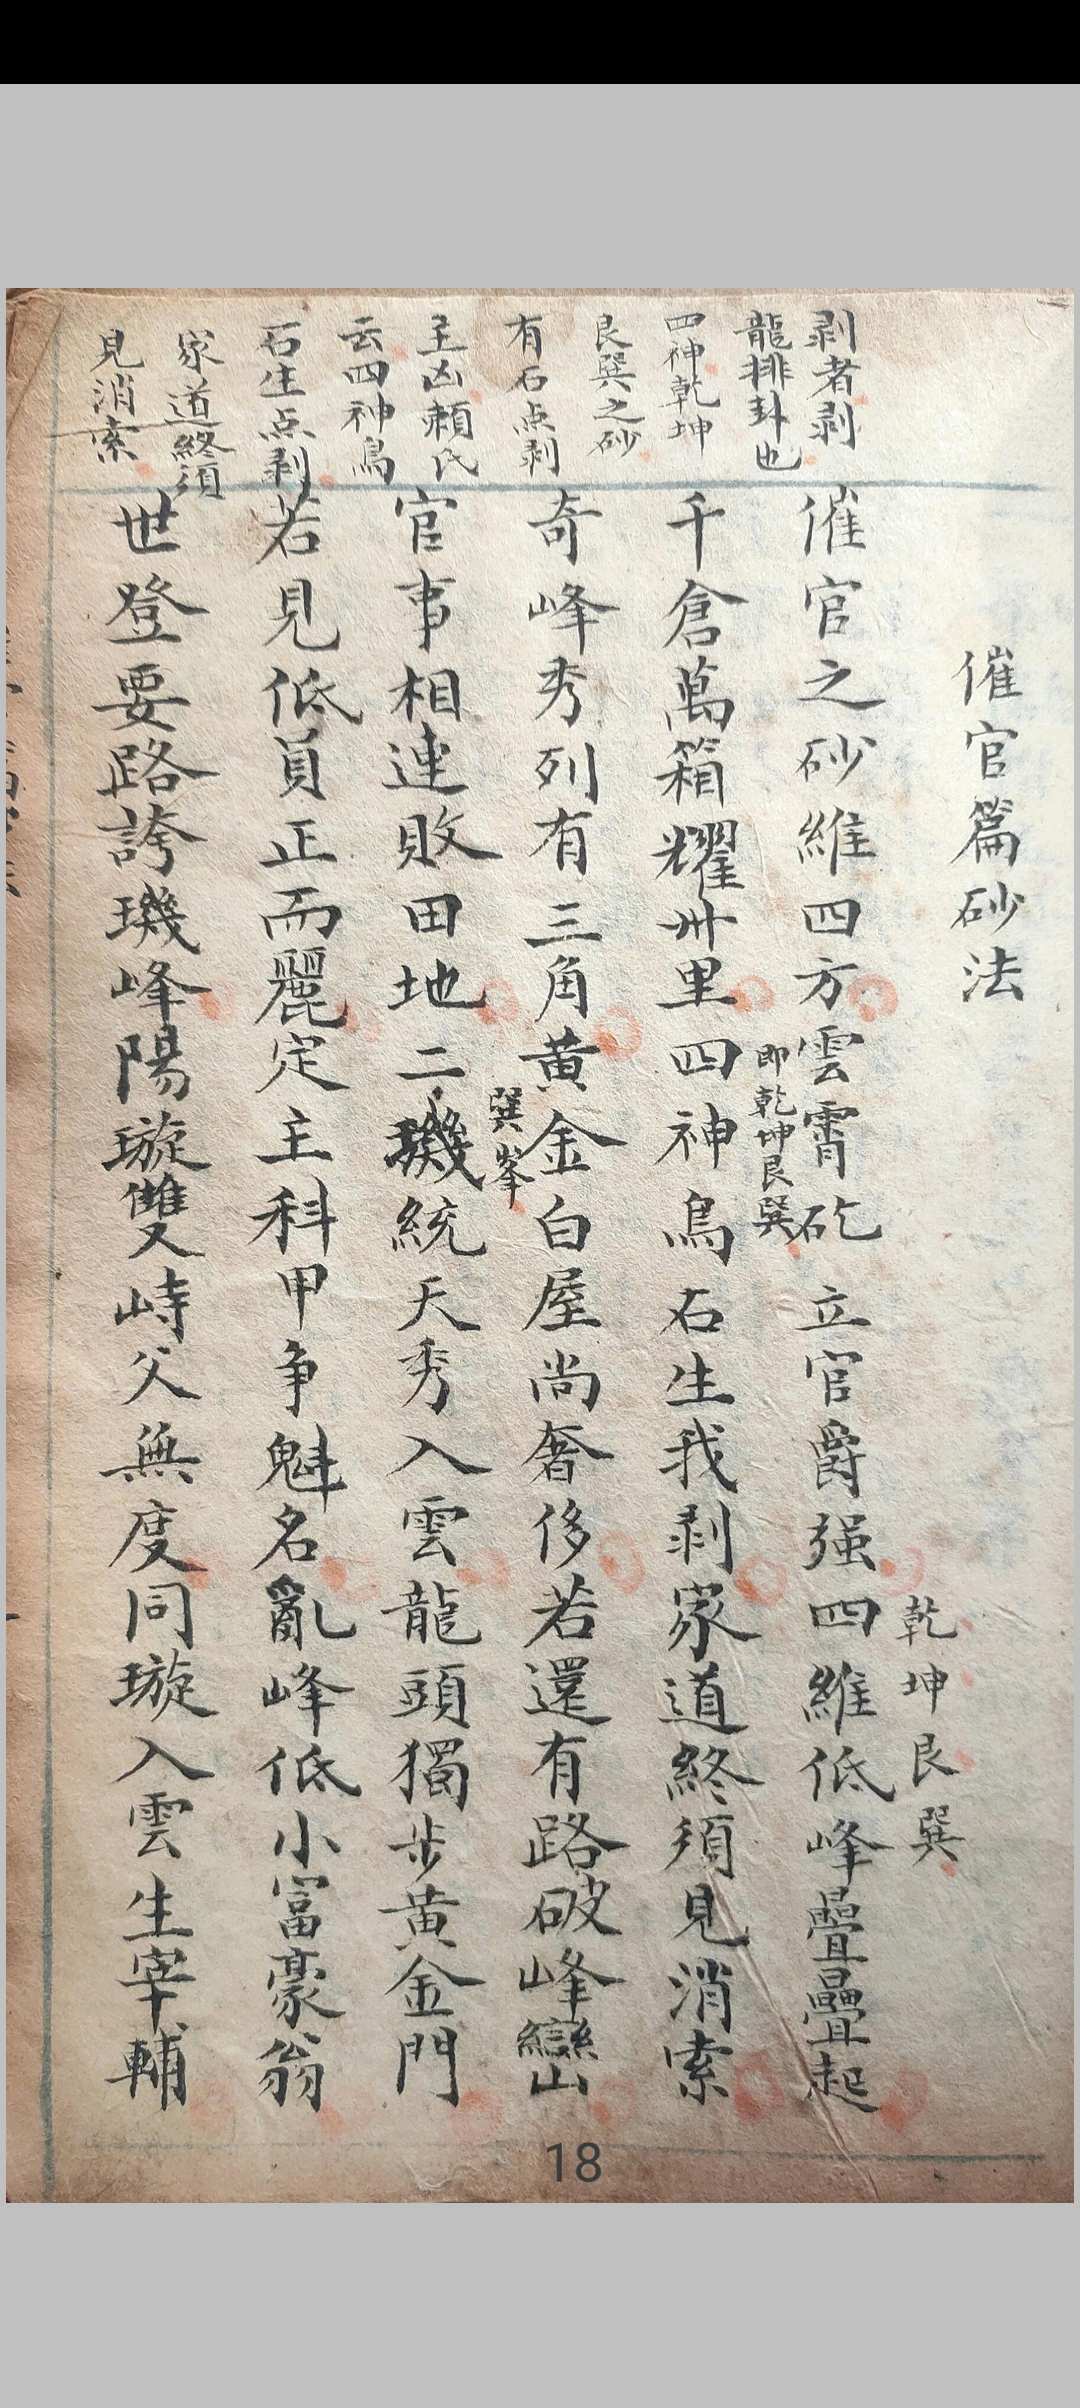 催官篇砂法
乾坤艮巽
催官之砂維四方雲霄矻立官爵强四維低峰疊疊起
即乾坤艮巽
千倉萬箱耀卅里四神鳥石生我剥家道終須見消索
奇峰秀列有三角黄金白屋尚奢侈若還有路破峰巒
巽峯
官事相連敗田地二璣統天秀入雲龍頭獨步黄金門
若見低員正而麗定主科甲争魁名亂峰低小富豪翁
世登要路誇璣峰陽璇雙峙父無度同璇入雲生宰輔
剥者剥
龍排卦也
四神乾坤
艮巽之砂
有石点剥
主凶賴氏
云四神鳥
石生点剥
家道終須
見消索
18